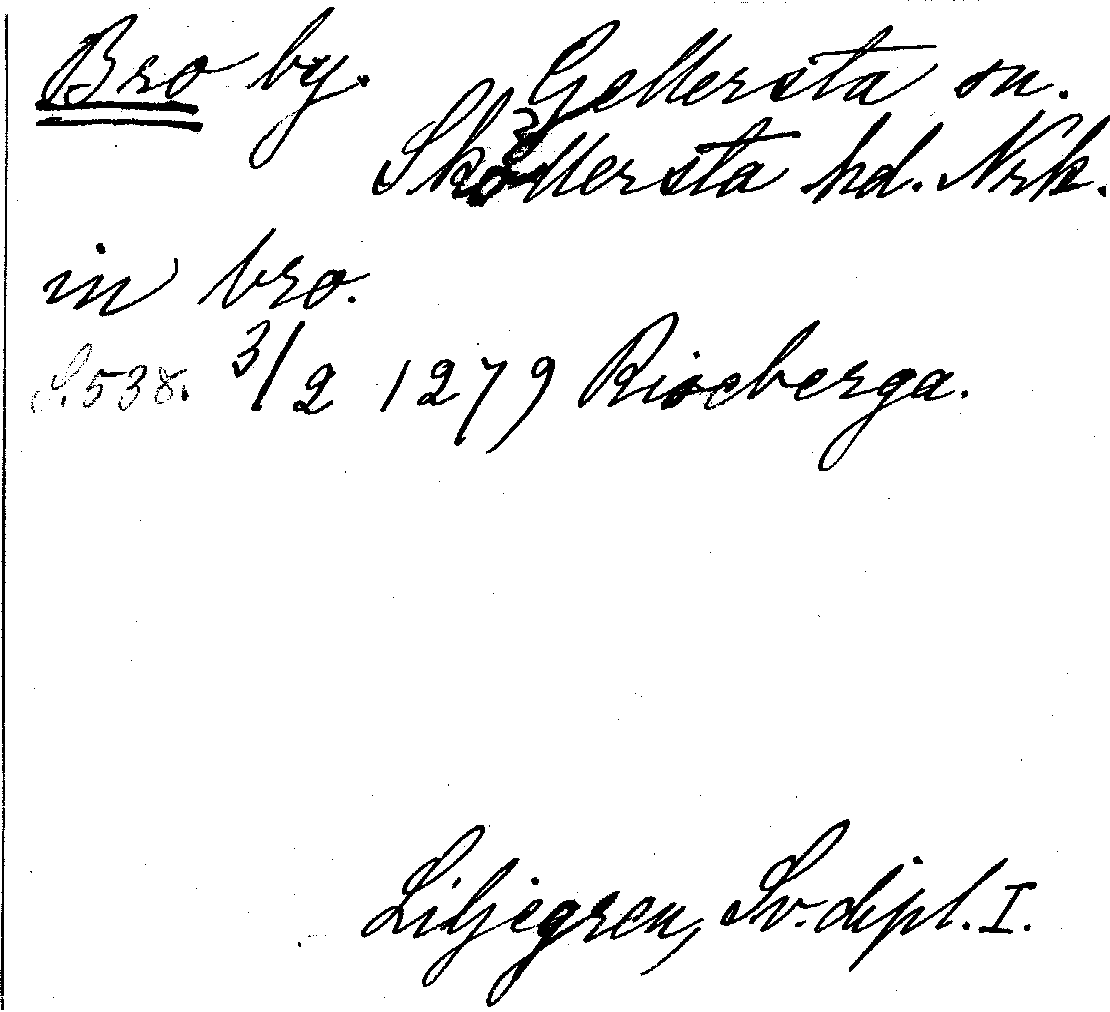 Bro by. Gellersta sn.
Sköllersta hd. Nrk.
in bro.
S. 538. 3/2 1279 Riseberga.
Liljegren, Sv. dipl. I.